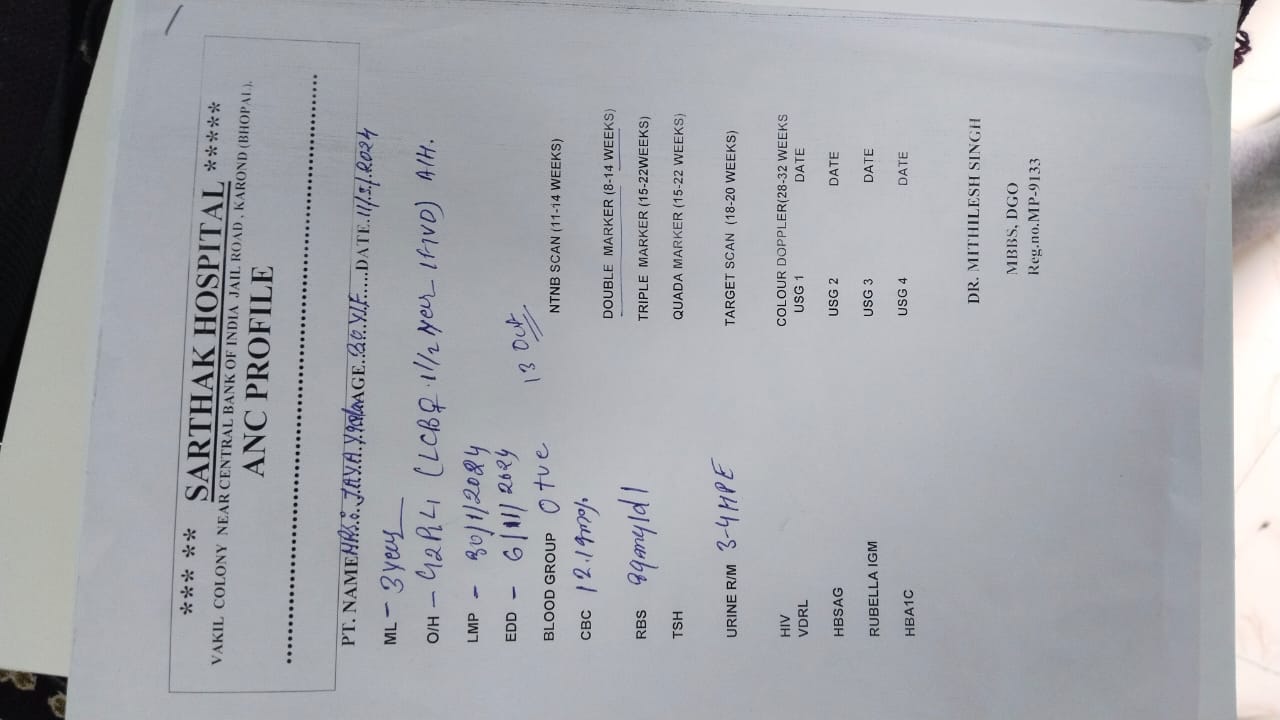 *** ** SARTHAK HOSPITAL *****
VAKIL COLONY NEAR CENTRAL BANK OF INDIA JAIL ROAD, KAROND (BHOPAL).
ANC PROFILE
PT. NAME MRS. JAYA AGE DATE 11/3/2024
ML - 3 year
O/H - G2P1L1 (LCB ♀ 1 1/2 year FTVD) A/H.
LMP - 30/1/2024
EDD - 6/11/2024
13 Oct
BLOOD GROUP O +ve
NTNB SCAN (11-14 WEEKS)
CBC 12.1gm%
DOUBLE MARKER (8-14 WEEKS)
RBS 89mg/dl
TRIPLE MARKER (15-22WEEKS)
TSH
QUADA MARKER (15-22 WEEKS)
URINE R/M 3-4 HPF
TARGET SCAN (18-20 WEEKS)
HIV
COLOUR DOPPLER(28-32 WEEKS
VDRL
USG 1 DATE
HBSAG
USG 2 DATE
RUBELLA IGM
USG 3 DATE
HBA1C
USG 4 DATE
DR. MITHILESH SINGH
MBBS, DGO
Reg.no.MP-9133